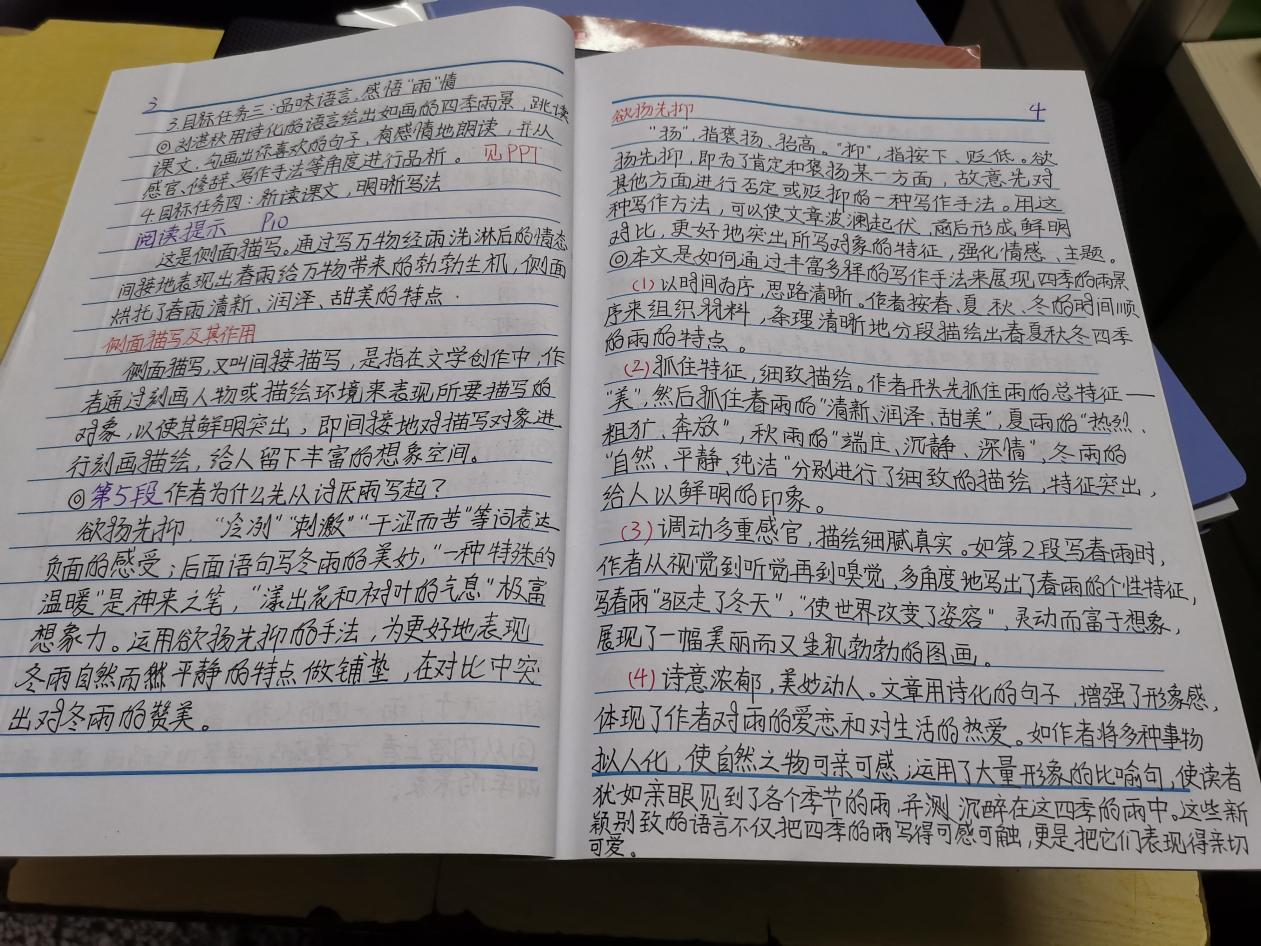 3
3.目标任务三:品味语言,感悟"雨"情
◎刘湛秋用诗化的语言绘出如画的四季雨景,跳读
课文,勾画出你喜欢的句子,有感情地朗读,并从
感官、修辞、写作手法等角度进行品析。 见PPT
4.目标任务四:析读课文,明晰写法
阅读提示 P10
这是侧面描写。通过写万物经雨洗淋后的情态
间接地表现出春雨给万物带来的勃勃生机,侧面
烘托了春雨清新、润泽、甜美的特点.
侧面描写及其作用
侧面描写,又叫间接描写,是指在文学创作中,作
者通过刻画人物或描绘环境来表现所要描写的
对象,以使其鲜明突出,即间接地对描写对象进
行刻画描绘,给人留下丰富的想象空间。
◎第5段作者为什么先从讨厌雨写起?
欲扬先抑."冷冽""刺激""干涩而苦"等词表达
负面的感受;后面语句写冬雨的美妙,"一种特殊的
温暖"是神来之笔,"漾出花和树叶的气息"极富
想象力。运用欲扬先抑的手法,为更好地表现
冬雨自然而然平静的特点做铺垫,在对比中突
出对冬雨的赞美。
4
欲扬先抑
"扬",指褒扬、抬高。"抑",指按下、贬低。欲
扬先抑,即为了肯定和褒扬某一方面,故意先对
其他方面进行否定或贬抑的一种写作手法。用这
种写作方法,可以使文章波澜起伏,前后形成鲜明
对比,更好地突出所写对象的特征,强化情感、主题。
◎本文是如何通过丰富多样的写作手法来展现四季的雨景
(1)以时间为序,思路清晰。作者按春、夏、秋、冬的时间顺
序来组织材料,条理清晰地分段描绘出春夏秋冬四季
的雨的特点。
(2)抓住特征,细致描绘。作者开头先抓住雨的总特征——
"美",然后抓住春雨的"清新、润泽、甜美",夏雨的"热烈、
粗犷、奔放",秋雨的"端庄、沉静、深情",冬雨的
"自然、平静、纯洁"分别进行了细致的描绘,特征突出,
给人以鲜明的印象。
(3)调动多重感官,描绘细腻真实。如第2段写春雨时,
作者从视觉到听觉再到嗅觉,多角度地写出了春雨的个性特征,
写春雨"驱走了冬天","使世界改变了姿容",灵动而富于想象,
展现了一幅美丽而又生机勃勃的图画。
(4)诗意浓郁,美妙动人。文章用诗化的句子,增强了形象感,
体现了作者对雨的爱恋和对生活的热爱。如作者将多种事物
拟人化,使自然之物可亲可感;运用了大量形象的比喻句,使读者
犹如亲眼见到了各个季节的雨,并测沉醉在这四季的雨中。这些新
颖别致的语言不仅把四季的雨写得可感可触,更是把它们表现得亲切
可爱。